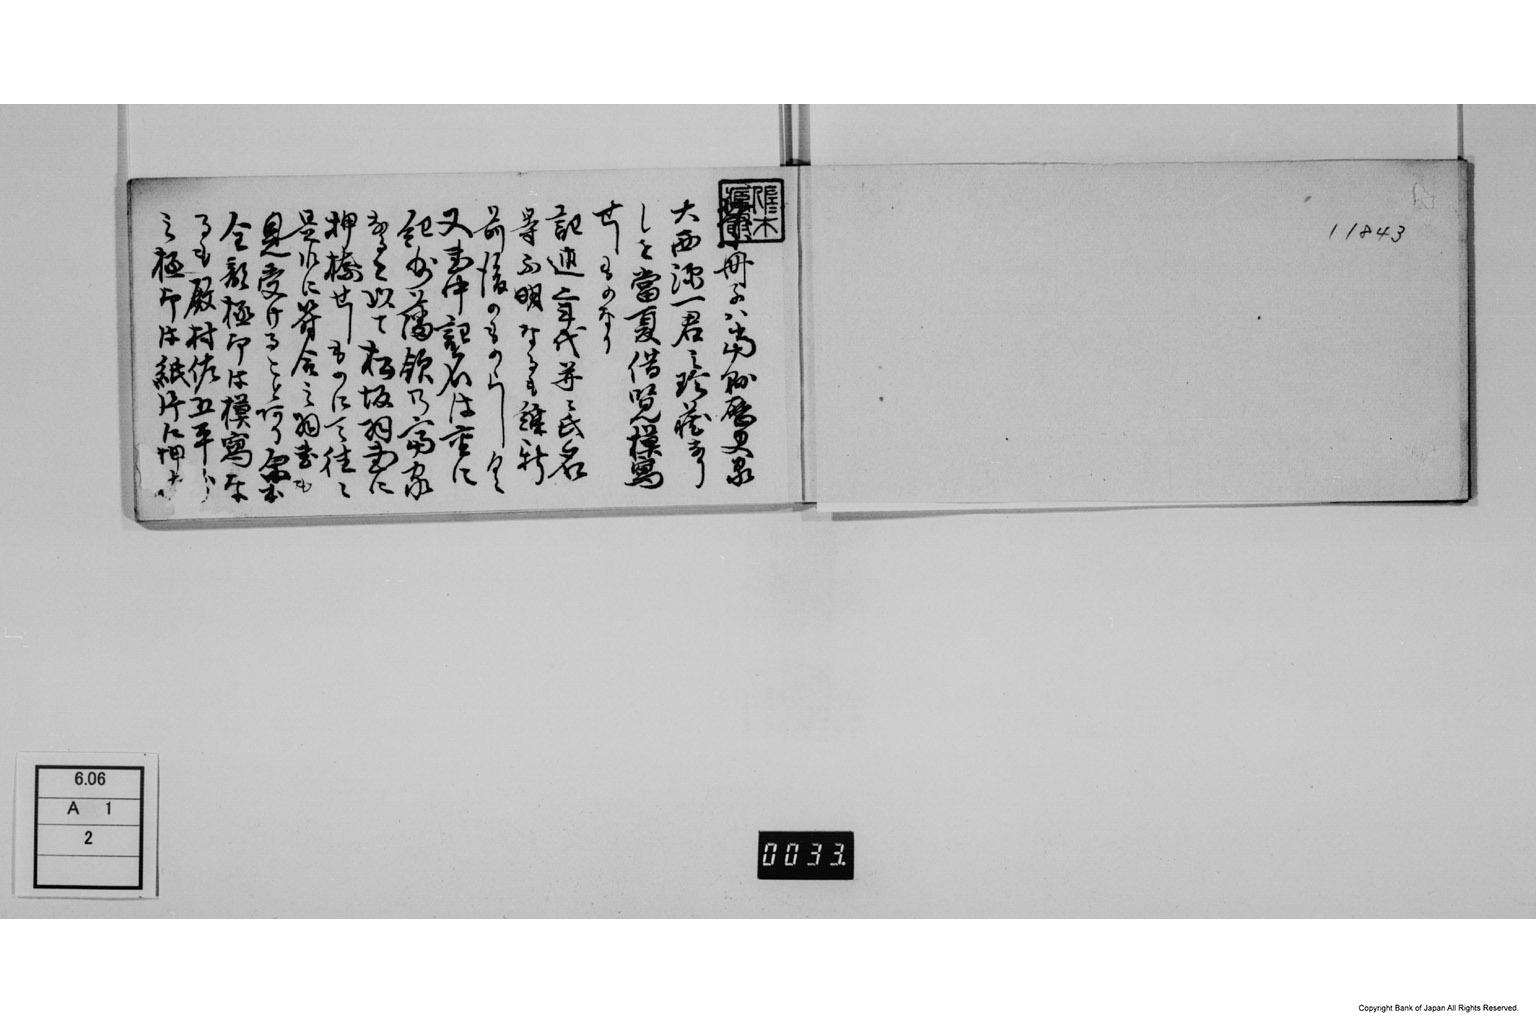 11843
冊子ハ当縣歴史家
大西源一君之珍蔵なり
しを當夏借覧模寫
せしものなり
記述年代并ニ氏名
等不明なるも維新
前後のものらしく
又書中記名は主に
紀州藩領乃富家
なるを以て松坂羽書に
押捺せしものにて往々
是水に符合之羽書も
見受けること阿り原書
全部極印は模寫な
るも殿村佐五平
之極印は紙片に押
6.06
A 1
2
0033.
Copyright Bank of Japan All Rights Reserved.